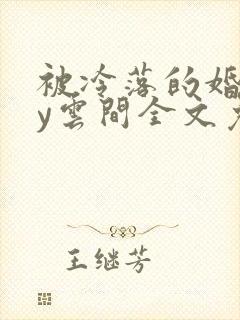 被冷落的婚
y雲間全文
王继芳